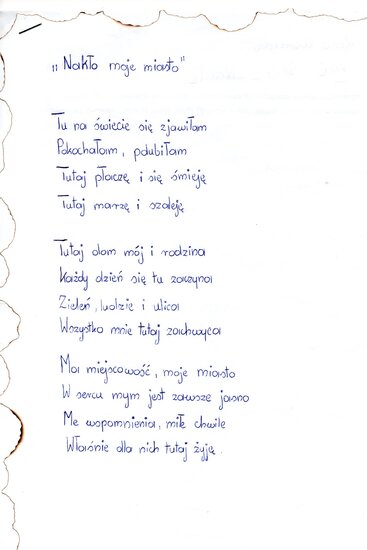 „Nakło moje miasto"
Tu na świecie się zjawiłam
Pokochałam, polubiłam
Tutaj płaczę i się śmieję
Tutaj marzę i szaleję
Tutaj dom mój i rodzina
Każdy dzień się tu zaczyna
Zieleń, ludzie i ulica
Wszystko mnie tutaj zachwyca
Ma miejscowość, moje miasto
W sercu mym jest zawsze jasno
Me wspomnienia, miłe chwile
Właśnie dla nich tutaj żyję.